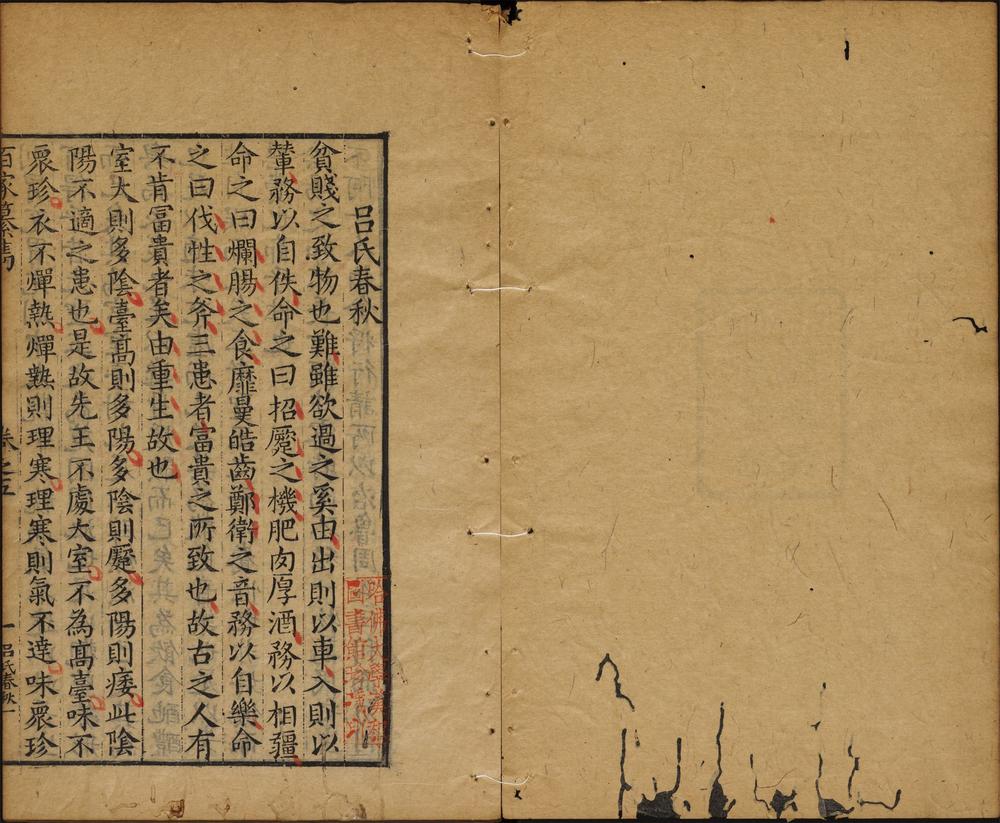 呂氏春秋
貧賤之致物也難雖欲過之奚由出則以車入則以
輦務以自佚命之曰招蹷之機肥肉厚酒務以相彊
命之曰爛腸之食靡曼皓齒鄭衛之音務以自樂命
之曰伐性之斧三患者富貴之所致也故古之人有
不肯冨貴者矣由重生故也
室大則多陰臺髙則多陽多陰則蹷多陽則痿此陰
陽不適之患也是故先王不處大室不為髙臺味不
衆珍衣不燀熱燀熱則理寒理寒則氣不達味衆珍
百家纂雋 卷之五 一 呂氏春秋一
哈佛大學漢和
圖書館珍藏印